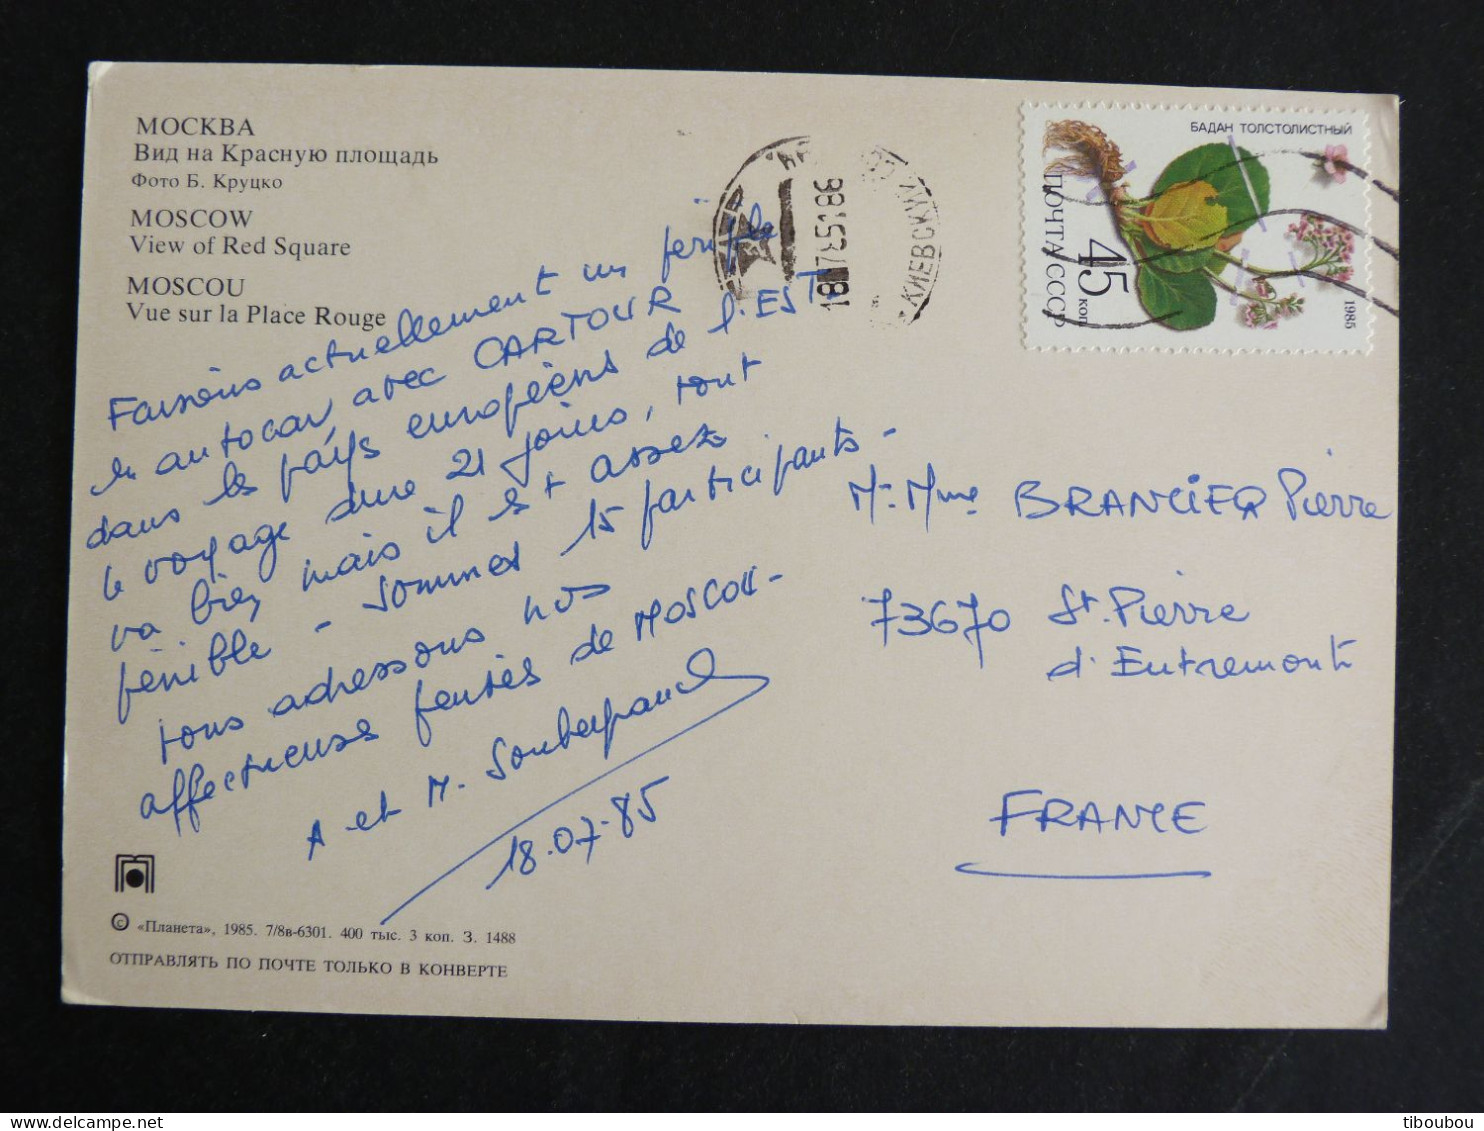 МОСКВА
Вид на Красную площадь
Фото Б. Круцко
MOSCOW
View of Red Square
MOSCOU
Vue sur la Place Rouge
Faisons actuellement un périple
en autocar avec CARTOUR
dans les pays européens de l'EST.
le voyage dure 21 jours, tout
va bien mais il est assez
pénible - sommes 15 participants -
vous adressons nos
affectueuses pensées de MOSCOU -
A et M.
18.07.85
«Планета», 1985. 7/8в-6301. 400 тыс. 3 коп. З. 1488
ОТПРАВЛЯТЬ ПО ПОЧТЕ ТОЛЬКО В КОНВЕРТЕ
КИЕВСКИЙ
БАДАН ТОЛСТОЛИСТНЫЙ
ПОЧТА СССР
45 коп
1985
Mr. Mme BRANCIER Pierre
73670 St. Pierre
d'Entremont
FRANCE
tiboubou